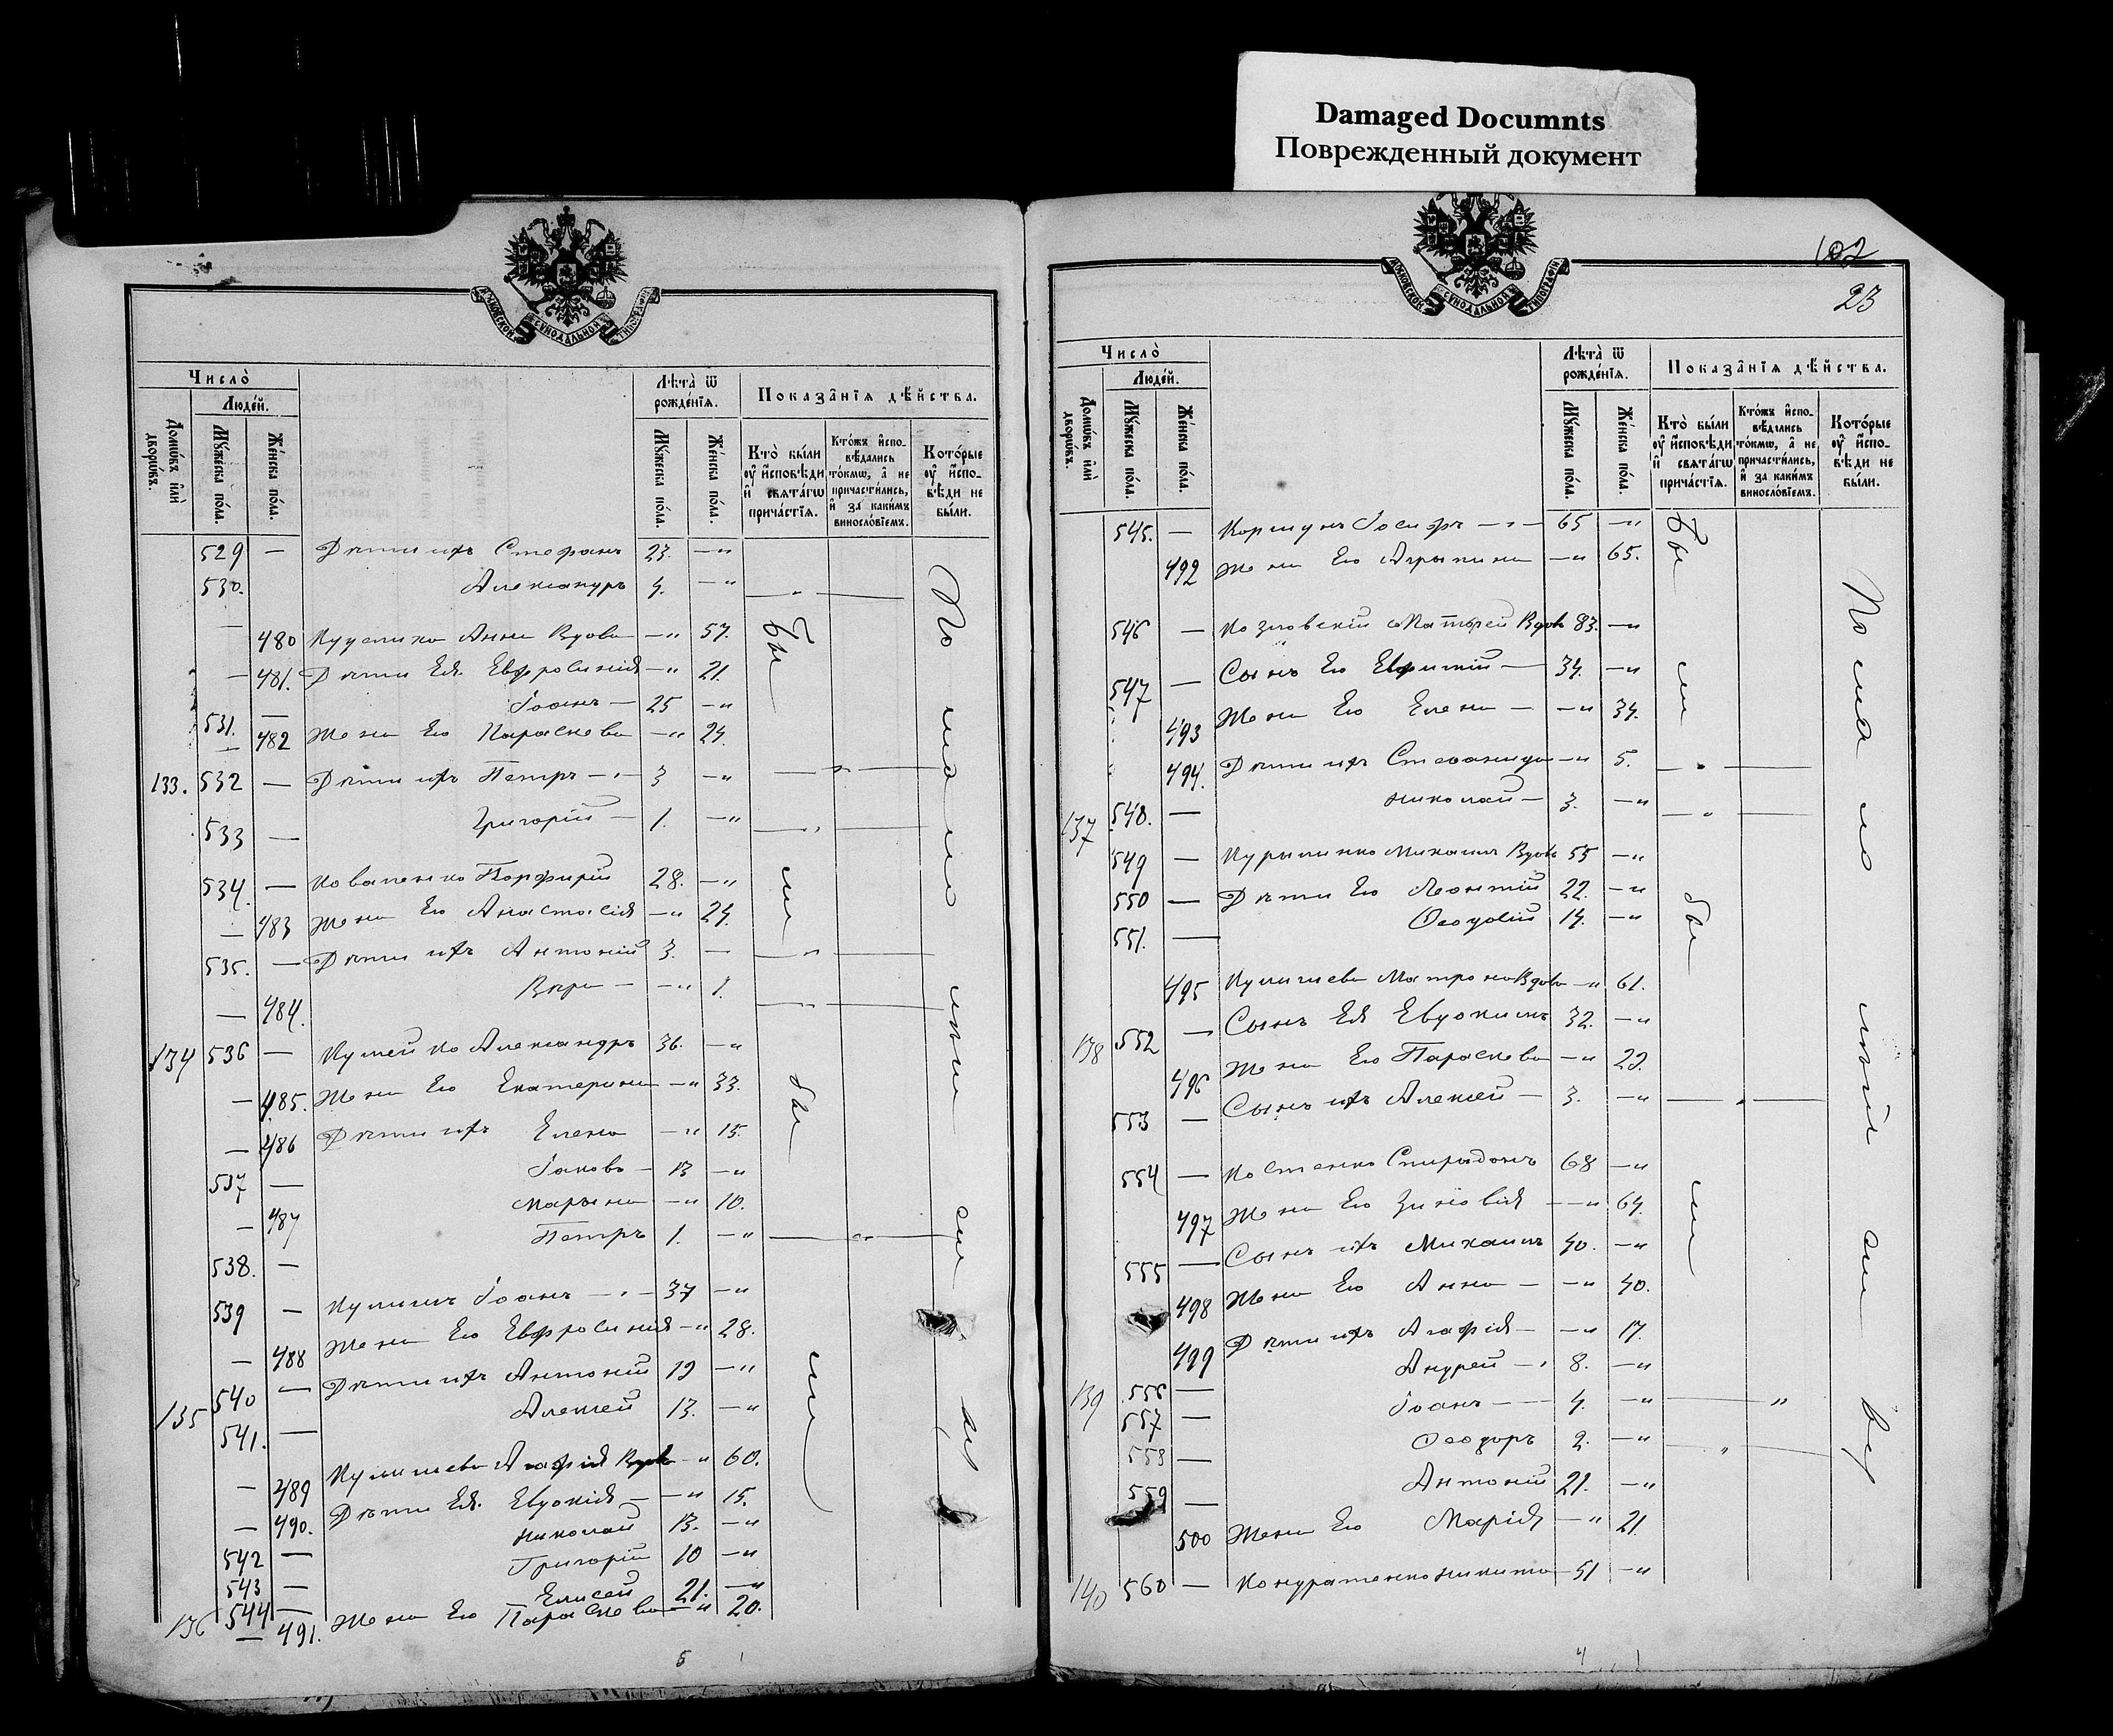 Damaged Documnts
Поврежденный документ
МОСКОВСКОЙ СѴНОДАЛЬНОЙ ТИПОГРАФІИ
Число̀
Людéй.
Домѡ́въ и҆лѝ дворѡ́въ.
Мꙋ́жеска по́ла.
Же́нска по́ла.
Лѣ́та ѿ рожде́нїѧ.
Мꙋ́жеска по́ла.
Же́нска по́ла.
Показа̑нїѧ дѣ́йства.
Кто̀ бы́ли оу҆ и҆сповѣди и҆ свѧта́гѡ прича́стїѧ.
Кто́жъ и҆спо-вѣ́дались то́кмѡ, а҆ не причасти́лись, и҆ за каки́мъ виносло́вїемъ.
Кото́рые оу҆ и҆спо-вѣди не бы́ли.
529 — Дѣти ихъ Стефанъ 23. —"
530. Александръ 4. —"
— 480 Анна Вдова —" 57.
— 481. Дѣти Ея Евфросинія —" 21.
531. — Іоаннъ — 25 —"
— 482 Жена Его Параскева —" 24.
133. 532 — Дѣти ихъ Петръ —"— 3 —"
533 — Григорій — 1. —"
534. — Коваленко Порфирій 28. —"
— 483 Жена Его Анастасія —" 24.
535. — Дѣти ихъ Антоній 3. —
— 484. Вѣра — —" 1.
134 536 — Александръ 36. —"
— 485. Жена Его Екатерина —" 33.
— 486 Дѣти ихъ Елена —" 15.
537 — Іаковъ — 13 —"
— 487 Марина —" 10.
538. — Петръ 1. —"
539 — Кулишъ Іоаннъ —"— 37 —"
— 488 Жена Его Евфросинія —" 28.
540 — Дѣти ихъ Антоній 19 —"
135 541. — Алексей 13. —"
— 489 Кулишева Агафія Вдова —" 60.
— 490. Дѣти Ея. Евдокія — —" 15.
542 — Николай 13. —"
543 — Григорій 10 —"
136 544 — Елисей 21. —"
— 491. Жена Его Параскева —" 20.
Бы ли бы ли
По мало
5
102
23
МОСКОВСКОЙ СѴНОДАЛЬНОЙ ТИПОГРАФІИ
Число̀
Людéй.
Домѡ́въ и҆лѝ дворѡ́въ.
Мꙋ́жеска по́ла.
Же́нска по́ла.
Лѣ́та ѿ рожде́нїѧ.
Мꙋ́жеска по́ла.
Же́нска по́ла.
Показа̑нїѧ дѣ́йства.
Кто̀ бы́ли оу҆ и҆сповѣди и҆ свѧта́гѡ прича́стїѧ.
Кто́жъ и҆спо-вѣ́дались то́кмѡ, а҆ не причасти́лись, и҆ за каки́мъ виносло́вїемъ.
Кото́рые оу҆ и҆спо-вѣди не бы́ли.
545. — Коршунъ Іосифъ —"— 65 —"
492 Жена Его Агрыпина —" 65.
546 — Козловскій Матѳей Вдов 83. —"
547 — Сынъ Его Евфимій — 34. —"
493 Жена Его Елена — —" 34.
494. Дѣти ихъ Стефанида —" 5.
137 548. — Николай — 3. —"
549 — Курыленко Михаилъ Вдов 55 —"
550 — Дѣти Его Леонтій 22. —"
551. — Ѳеодосій 14. —"
495 Кулишева Матрона Вдова —" 61.
138 552 — Сынъ Ея Евдокимъ 32. —"
496 Жена Его Параскева —" 23.
553 — Сынъ ихъ Алексей — 3. —"
554 — Костенко Спиридонъ 68 —"
497 Жена Его Зиновія ——" 64.
555 — Сынъ ихъ Михаилъ 40. —"
498 Жена Его Анна — —" 40.
499 Дѣти ихъ Агафія — —" 17.
139 556 — Андрей — 8. —"
557 — Іоаннъ —— 4. —"
558 — Ѳеодоръ 2. —"
559 — Антоній 21. —"
500 Жена Его Марія —" 21
140 560 — Кондратенко Никита — 51 —"
Бы ли бы ли
По мало
4